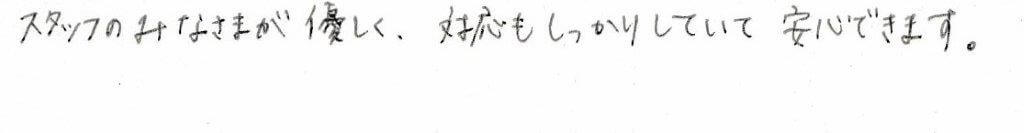 スタッフのみなさまが優しく、対応もしっかりしていて安心できます。